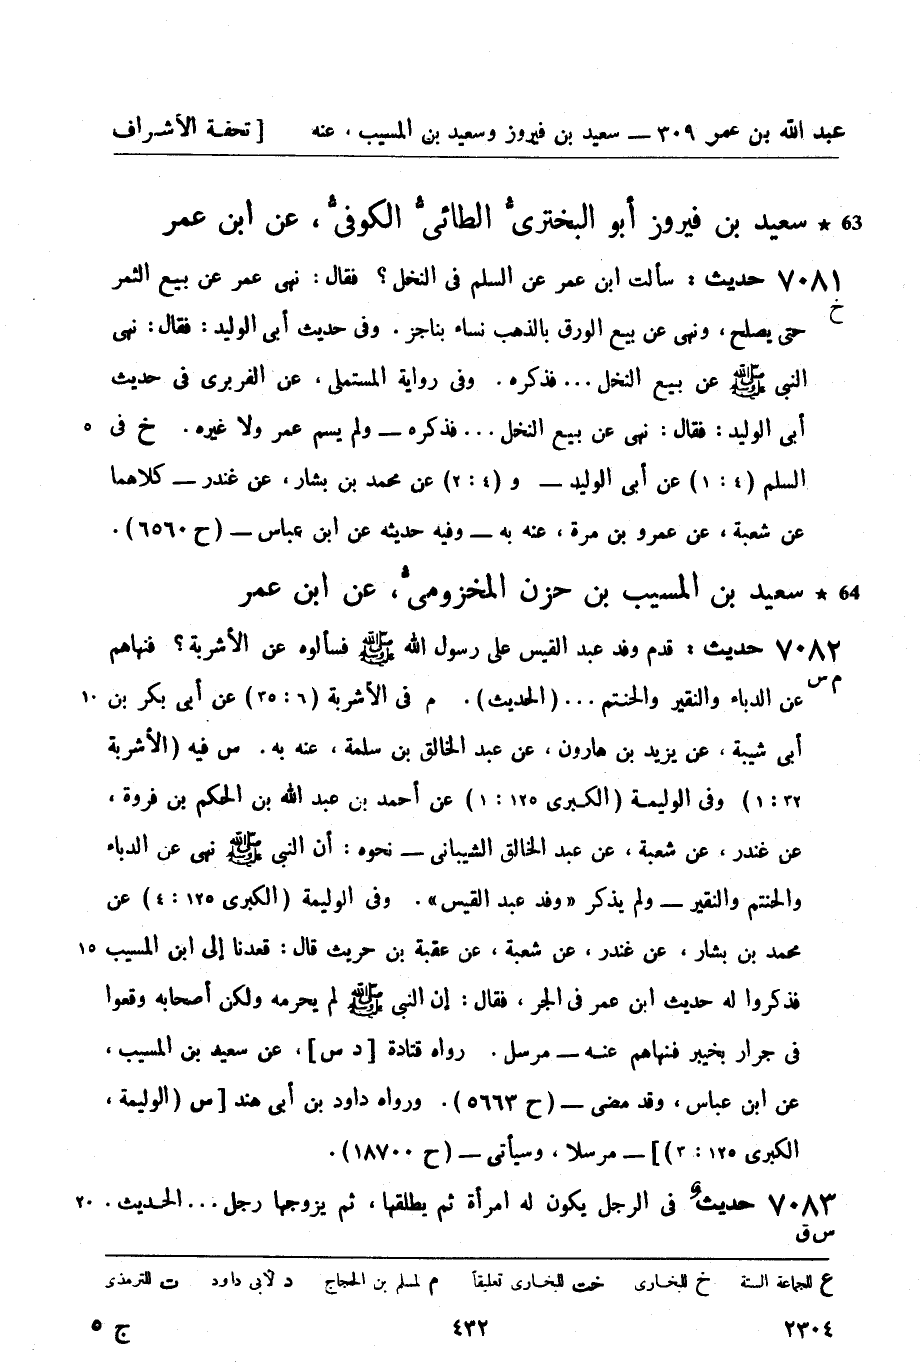 عبد الله بن عمر ٣٠٩ — سعيد بن فيروز وسعيد بن المسيب ، عنه [ تحفة الأشراف
63 * سعيد بن فيروز أبو البخترى الطائى الكوفى ، عن ابن عمر
٧٠٨١ حديث : سألت ابن عمر عن السلم فى النخل ؟ فقال : نهى عمر عن بيع الثمر
خ
حتى يصلح ، ونهى عن بيع الورق بالذهب نساء بناجز . وفى حديث أبى الوليد : فقال : نهى
النبى ﷺ عن بيع النخل ... فذكره . وفى رواية المستملى ، عن الفربرى فى حديث
أبى الوليد : فقال : نهى عن بيع النخل ... فذكره — ولم يسم عمر ولا غيره . خ فى ٥
السلم (٤ : ١) عن أبى الوليد — و (٤ : ٢) عن محمد بن بشار ، عن غندر — كلاهما
عن شعبة ، عن عمرو بن مرة ، عنه به — وفيه حديثه عن ابن عباس — (ح ٦٥٦٠) .
64 * سعيد بن المسيب بن حزن المخزومى ، عن ابن عمر
٧٠٨٢ حديث : قدم وفد عبد القيس على رسول الله ﷺ فسألوه عن الأشربة ؟ فنهاهم
م س
عن الدباء والنقير والحنتم ... (الحديث) . م فى الأشربة (٦ : ٣٥) عن أبى بكر بن ١٠
أبى شيبة ، عن يزيد بن هارون ، عن عبد الخالق بن سلمة ، عنه به . س فيه (الأشربة
٣٢ : ١) وفى الوليمة (الكبرى ١٢٥ : ١) عن أحمد بن عبد الله بن الحكم بن فروة ،
عن غندر ، عن شعبة ، عن عبد الخالق الشيبانى — نحوه : أن النبى ﷺ نهى عن الدباء
والحنتم والنقير — ولم يذكر «وفد عبد القيس» . وفى الوليمة (الكبرى ١٢٥ : ٤) عن
محمد بن بشار ، عن غندر ، عن شعبة ، عن عقبة بن حريث قال : قعدنا إلى ابن المسيب ١٥
فذكروا له حديث ابن عمر فى الجر ، فقال : إن النبى ﷺ لم يحرمه ولكن أصحابه وقعوا
فى جرار بخيبر فنهاهم عنه — مرسل . رواه قتادة [د س] ، عن سعيد بن المسيب ،
عن ابن عباس ، وقد مضى — (ح ٥٦٦٣) . ورواه داود بن أبى هند [س (الوليمة ،
الكبرى ١٢٥ : ٣)] — مرسلا ، وسيأتى — (ح ١٨٧٠٠) .
٧٠٨٣ حديث فى الرجل يكون له امرأة ثم يطلقها ، ثم يزوجها رجل ... الحديث . ٢٠
س ق
ع للجماعة الستة خ للخارى خت للبخارى تعليقاً م لمسلم بن الحجاج د لأبى داود ت للترمذى
٢٣٠٤ ٤٣٢ ج ٥